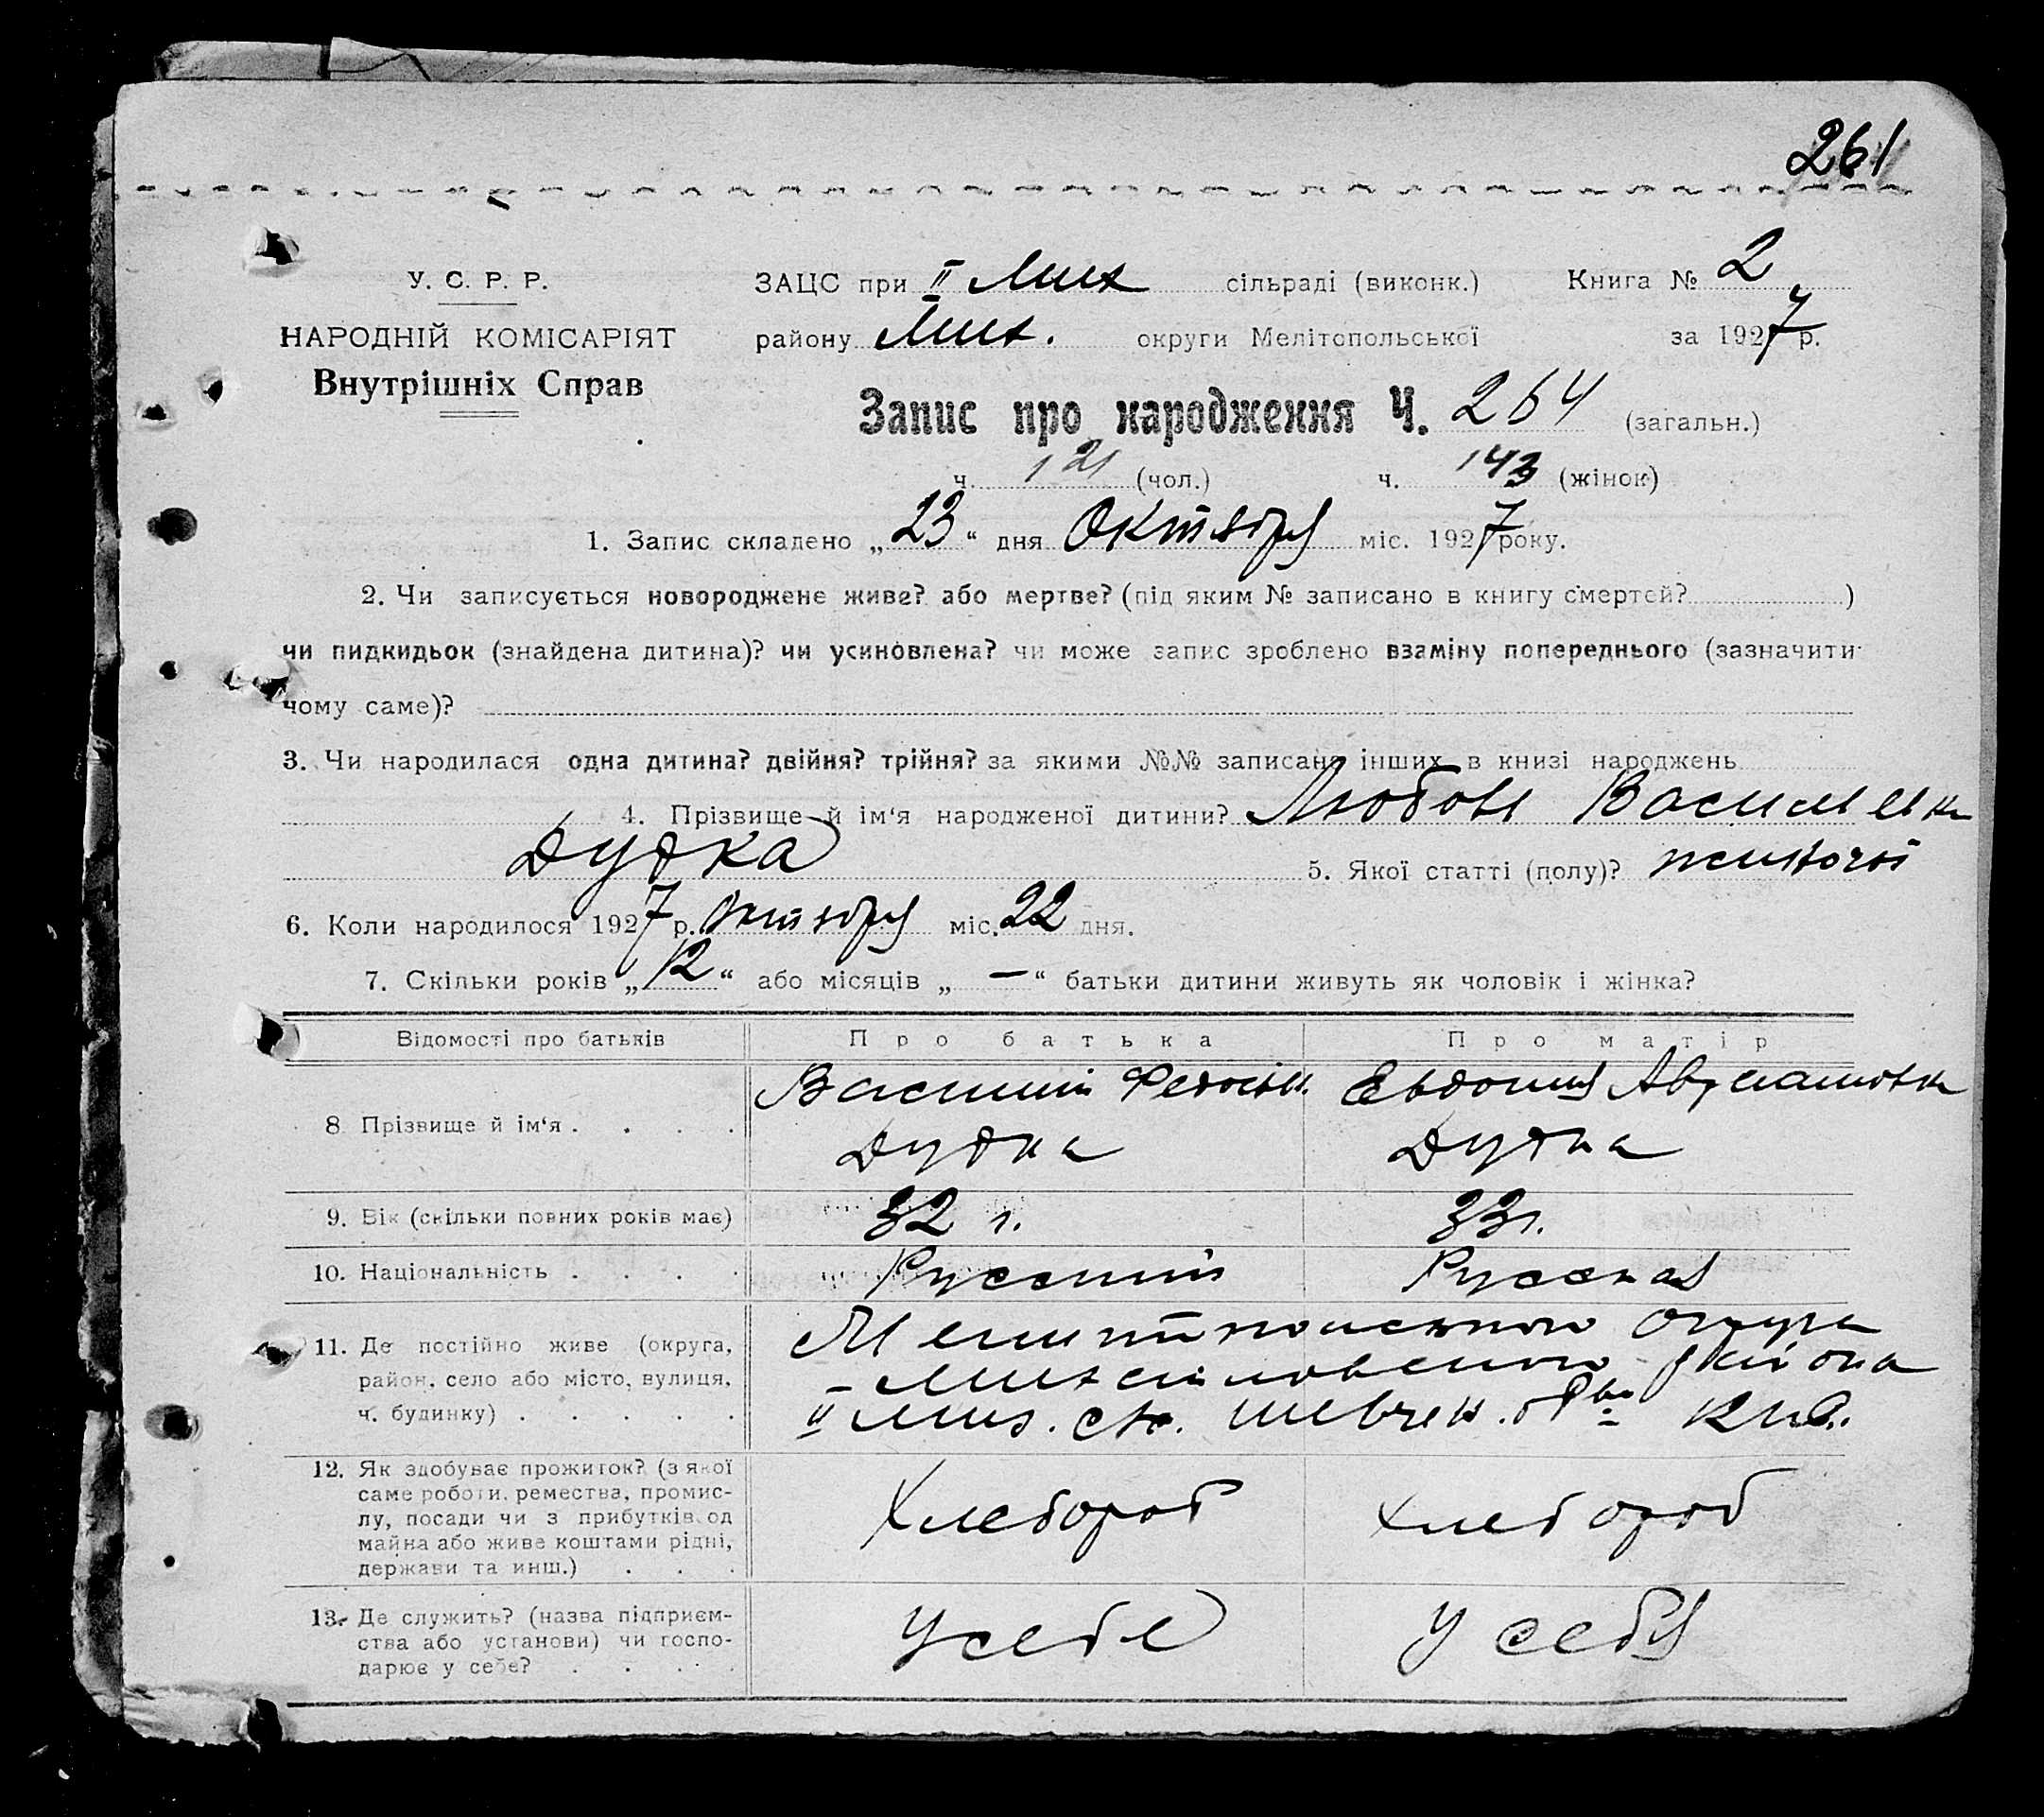 261
У. С. Р. Р.
НАРОДНІЙ КОМІСАРІЯТ
Внутрішніх Справ
ЗАЦС при II Мих сільраді (виконк.) Книга № 2
району Мих. округи Мелітопольської за 1927 р.
Запис про народження Ч. 264 (загальн.)
ч. 121 (чол.) ч. 143 (жінок)
1. Запис складено „23“ дня Октября міс. 1927 року.
2. Чи записується новороджене живе? або мертве? (під яким № записано в книгу смертей? )
чи пидкидьок (знайдена дитина)? чи усиновлена? чи може запис зроблено взаміну попереднього (зазначити
чому саме)?
3. Чи народилася одна дитина? двійня? трійня? за якими №№ записано інших в книзі народжень
4. Прізвище й ім‘я народженої дитини? Любовь Васильевна
Дудка 5. Якої статті (полу)?
6. Коли народилося 1927 р. Октября міс. 22 дня.
7. Скільки років „12“ або місяців „—“ батьки дитини живуть як чоловік і жінка?
Відомості про батьків Про батька Про матір
8 Прізвище й ім‘я . . . . Василий Федосеев. Евдокия
Дудка Дудка
9. Вік (скільки повних років має) 32 г. 33 г.
10. Національність . . . . Русский Русская
11. Де постійно живе (округа, Мелитопольского Округа
район, село або місто, вулиця, Михайловского района
ч. будинку) . . . . . II Мих. с/с. Шевчен.
12. Як здобуває прожиток? (з якої
саме роботи, ремества, промис-
лу, посади чи з прибутків од Хлебороб Хлебороб
майна або живе коштами рідні,
держави та инш.) . . .
13. Де служить? (назва підприєм-
ства або установи) чи госпо- У себе У себя
дарює у себе? . . . . .